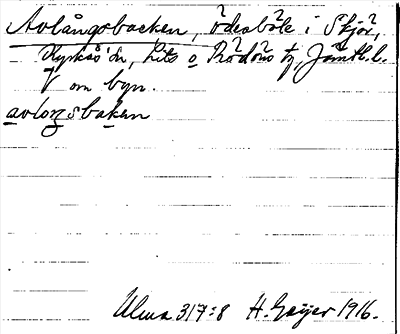 Avlångsbacken, ödesböle i Skjör,
Kyrkås sn, Lits o Rödöns tg, Jämtl. l.
V om byn.
avloŋsbaken
Ulma 317:8 H. Geijer 1916.